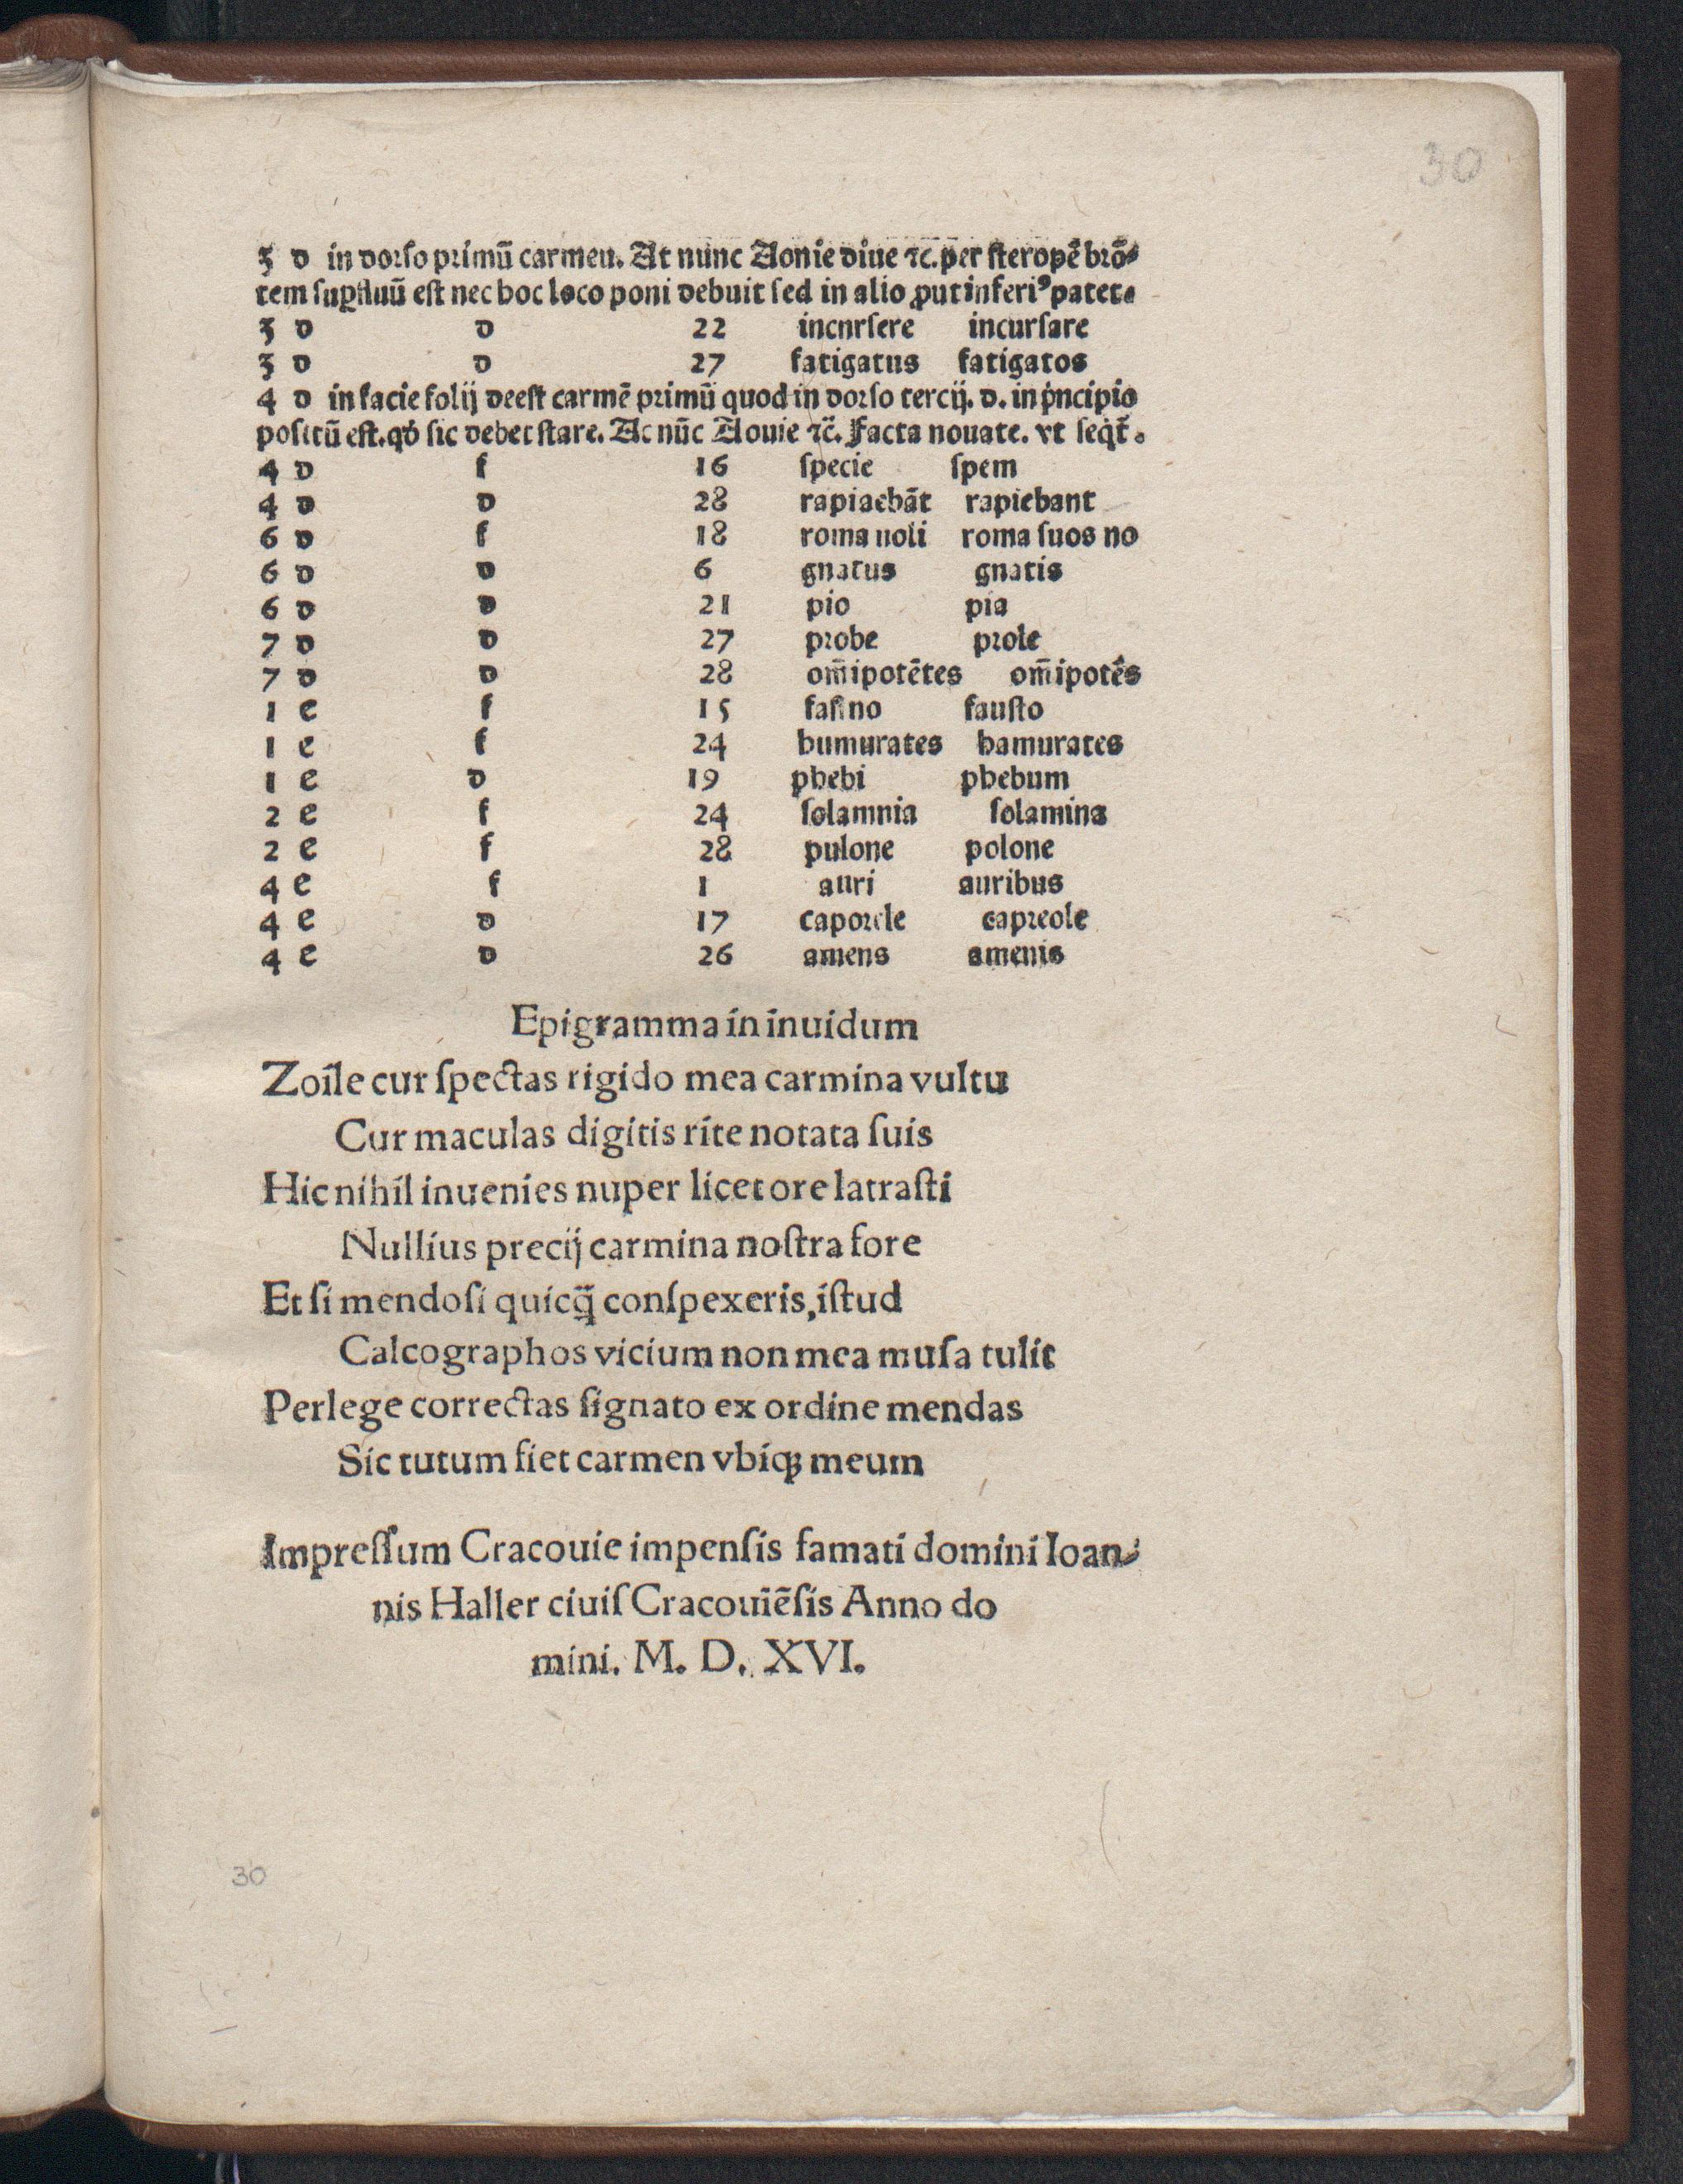 30
3 d in dorſo primū carmen. At nunc Aonie diue ⁊c. per ſteropē brō⸗
tem ſuꝑfluū eſt nec hoc loco poni debuit ſed in alio ꝓut inferiꝰ patet.
3 d d 22 incnrſere incurſare
3 d d 27 fatigatus fatigatos
4 d in facie folij deeſt carmē primū quod in dorſo tercij. d. in pͥncipio
poſitū eſt. qḋ ſic debet ſtare. Ac nūc Aouie ⁊c̄. Facta nouate. vt ſeqͥt̄.
4 d f 16 ſpecie ſpem
4 d d 28 rapiaebāt rapiebant
6 d f 18 roma noli roma ſuos no
6 d d 6 gnatus gnatis
6 d d 21 pio pia
7 d d 27 probe prole
7 d d 28 om̄ipotētes om̄ipotēs
1 e f 15 faſino fauſto
1 e f 24 humurates hamurates
1 e d 19 phebi phebum
2 e f 24 ſolamnia ſolamina
2 e f 28 pulone polone
4 e f 1 auri auribus
4 e d 17 caporele capreole
4 e d 26 amens amenis
Epigramma in inuidum
Zoile cur ſpectas rigido mea carmina vultu
Cur maculas digitis rite notata ſuis
Hic nihil inuenies nuper licet ore latraſti
Nullius precij carmina noſtra fore
Et ſi mendoſi quicq̄ conſpexeris, iſtud
Calcographos vicium non mea muſa tulit
Perlege correctas ſignato ex ordine mendas
Sic tutum fiet carmen vbiqꝫ meum
Impreſſum Cracouie impenſis famati domini Ioan⸗
nis Haller ciuiſ Cracouiēſis Anno do
mini. M. D. XVI.
30